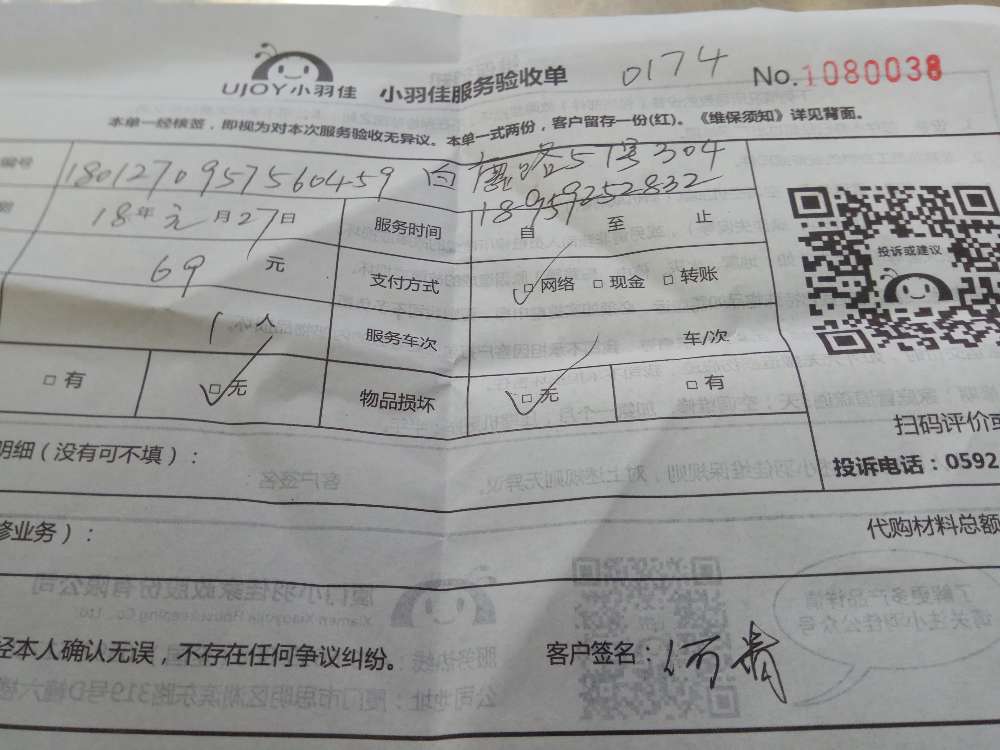 UJOY小羽佳 小羽佳服务验收单 0174 No.1080038
本单一经核签，即视为对本次服务验收无异议。本单一式两份，客户留存一份(红)。《维保须知》详见背面。
编号 1801270957560459 白鹭路51号304
18959252832
18年元月27日 服务时间 自 至 止
69元 支付方式 □网络 □现金 □转账
投诉或建议
1人 服务车次 车/次
□有 □无 物品损坏 □无 □有
扫码评价或
明细（没有可不填）： 投诉电话：0592
修业务）： 代购材料总额
经本人确认无误，不存在任何争议纠纷。 客户签名：